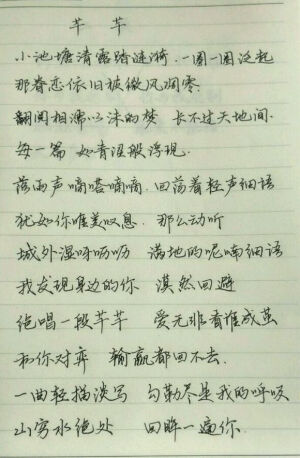 芊芊
小池塘清露踏涟漪 一圈一圈泛起
那眷恋依旧被微风凋零
翻阅相濡以沫的梦 长不过天地间
每一篇 如青涩般浮现
落雨声嘀嗒嘀嘀 回荡着轻声细语
犹如你唯美叹息 那么动听
城外湿呀沥沥 满地的呢喃细语
我发现身边的你 漠然回避
绝唱一段芊芊 爱无非看谁成茧
和你对弈 输赢都回不去
一曲轻描淡写 勾勒尽是我的呼唤
山穷水绝处 回眸一遍你